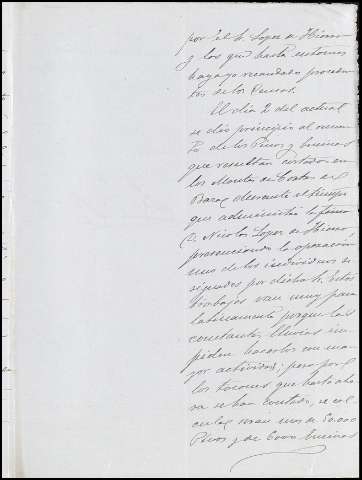 por el Sr. Lopez de Hierro
y los que hasta entonces
haya yo recaudado proceden
tes de los
El dia 2 del actual
se dió principio al recuen
to de los Pinos y encinas
que resultan cortados en
los Montes de Cortes en
durante el tiempo
que administra la finca
D. Nicolas Lopez de Hierro,
presenciando la operación
uno de los individuos de
signados por dicho Sr. Estos
trabajos van muy para
latinamente porque las
constantes lluvias im
piden hacerlos con ma
yor actividad; pero por
los tocones que hasta aho
ra se han contado, se cal
cula serán unos de 50.000
Pinos y de 6000 Encinas